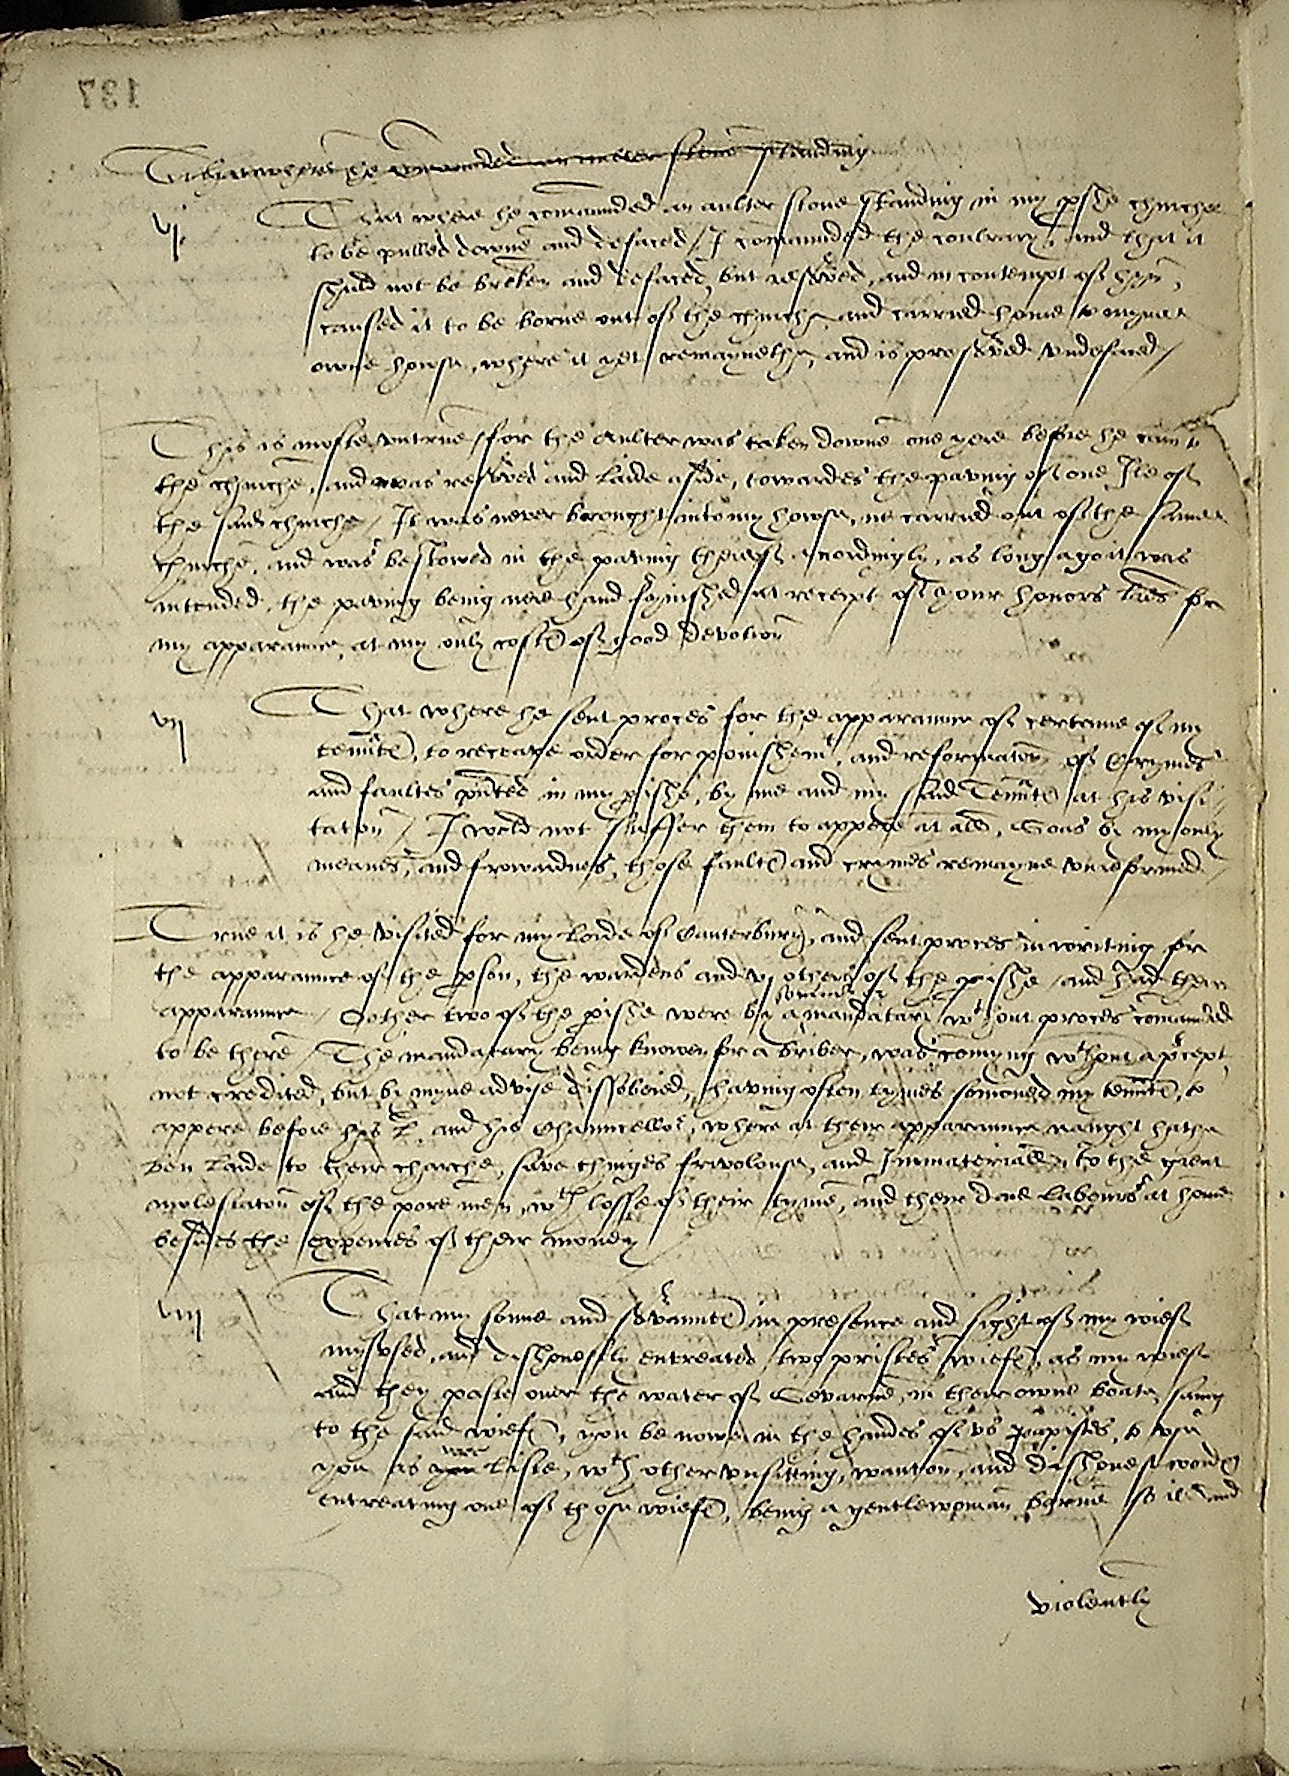 137
That where he comaunded an aulter stone standing
vj. That where he comaunded an aulter stone standing in my pishe churche
to be pulled downe and defaced / I comaunded the contrary, and that it
shuld not be broken and defaced, but reserved, and in contempt of hym,
caused it to be borne out of the churche and carried home to myne
owne howse, where it yet remaynethe, and is preserved undefaced /
This is moste untrue / for the aulter was taken downe one yere before he cam to
the churche, and was reserved and laide aside, towardes the paving of one Ile of
the said churche / It was never brought into my howse, ne carried out of the same
churche, and was bestowed in the paving therof accordingly, as long ago it was
intended, the paving being nere hand fynished at receipt of your honors lres for
my apparaunce, at my only coste of good devotion
vij That where he sent proces for the apparaunce of certaine of my
tennte, to receave order for ponishemt, and reformaton of Crymes
and faultes pnted in my pishe, by me and my said Tennte at his visi-
taton / I wold not suffer them to appere at all, Soas by my only
meanes, and frowardnes, those faulte and crymes remayne unreformed /
True it is he visited for my Lorde of Canterbury, and sent proces in writing for
the apparaunce of the pson, the wardens and vj others of the pishe, and had their
apparaunce / Oother two of the pishe were by a mandatary wthout proces comaunded
to be there / The mandatary being knowen for a briber, was comyng wthout a pcept,
not credited, but by myne advise dissobeied, having often tymes somoned my tennte, to
appere before his L. and his Chauncellor, where at their apparaunce naught hathe
ben laide to their charche, save thinges frivolouse, and Immateriall, to the great
molestaton of the pore men, wth losse of their tyme, and their daie labours at home
besides the expences of their money
viij That my sonne and servannte in presence and sight of my wief
mysused, and dishonestly entreated two pristes wiefe, as my wief
and they paste over the water of Severne, in their owne boate, saing
to the said wiefe, you be nowe in the handes of us papistes, to use
you as we liste, wth other unfitting, wanton, and dishonest wordes
entreating one of those wiefe, being a gentlewoman borne so ill and
violently